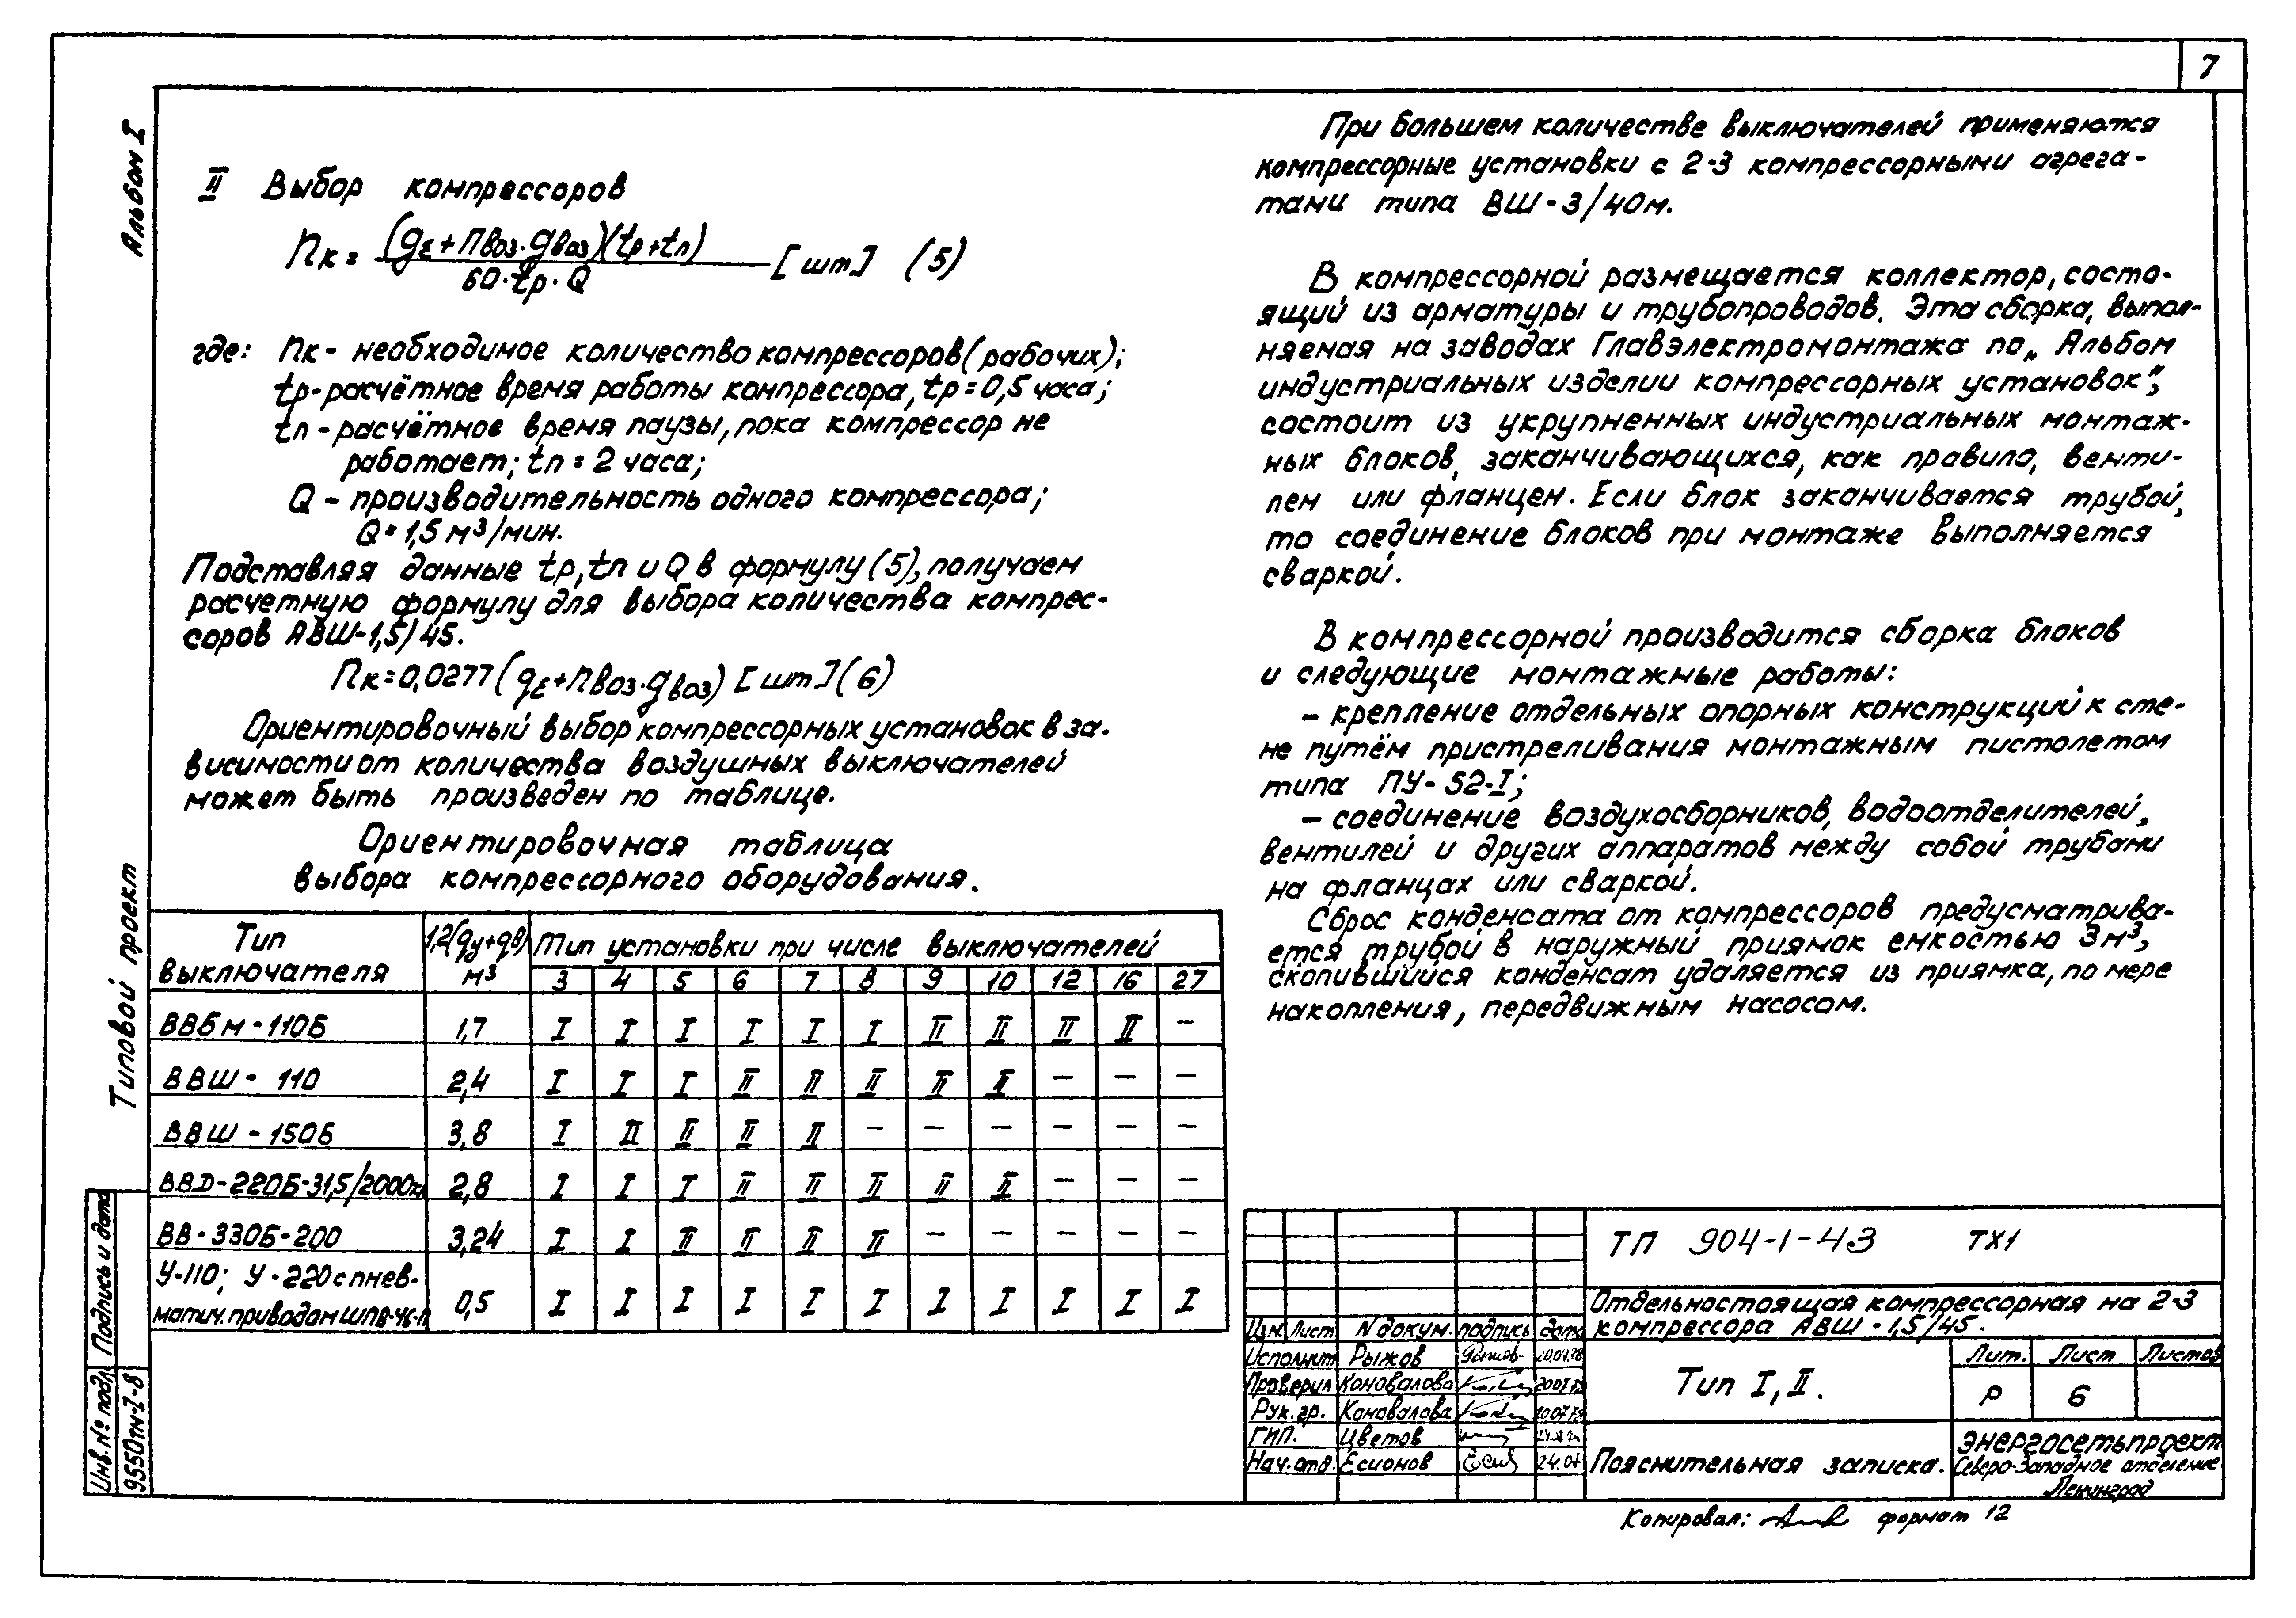 7
Альбом I
Типовой проект
II Выбор компрессоров
nк = (gε + nвоз · gвоз)(tр + tп) / 60 · tр · Q [шт] (5)
где: nк - необходимое количество компрессоров (рабочих);
tр - расчётное время работы компрессора, tр = 0,5 часа;
tп - расчётное время паузы, пока компрессор не
работает; tп = 2 часа;
Q - производительность одного компрессора;
Q = 1,5 м³/мин.
Подставляя данные tр, tп и Q в формулу (5), получаем
расчетную формулу для выбора количества компрес-
соров АВШ-1,5/45.
nк = 0,0277 (gε + nвоз · gвоз) [шт] (6)
Ориентировочный выбор компрессорных установок в за-
висимости от количества воздушных выключателей
может быть произведен по таблице.
Ориентировочная таблица
выбора компрессорного оборудования.
Тип выключателя | 1,2(gу+gв) м³ | Тип установки при числе выключателей
3 | 4 | 5 | 6 | 7 | 8 | 9 | 10 | 12 | 16 | 27
ВВбм-110Б | 1,7 | I | I | I | I | I | I | II | II | II | II | –
ВВШ - 110 | 2,4 | I | I | I | II | II | II | II | II | – | – | –
ВВШ - 150Б | 3,8 | I | II | II | II | II | – | – | – | – | – | –
ВВД-220Б-31,5/2000 | 2,8 | I | I | I | II | II | II | II | II | – | – | –
ВВ-330Б-200 | 3,24 | I | I | II | II | II | II | – | – | – | – | –
У-110; У-220 с пнев-
матич. приводом ШПВ-46-П | 0,5 | I | I | I | I | I | I | I | I | I | I | I
При большем количестве выключателей применяются
компрессорные установки с 2-3 компрессорными агрега-
тами типа ВШ-3/40м.
В компрессорной размещается коллектор, состо-
ящий из арматуры и трубопроводов. Эта сборка, выпол-
няемая на заводах Главэлектромонтажа по „Альбом
индустриальных изделии компрессорных установок",
состоит из укрупненных индустриальных монтаж-
ных блоков, заканчивающихся, как правило, венти-
лем или фланцем. Если блок заканчивается трубой,
то соединение блоков при монтаже выполняется
сваркой.
В компрессорной производится сборка блоков
и следующие монтажные работы:
- крепление отдельных опорных конструкций к сте-
не путём пристреливания монтажным пистолетом
типа ПУ-52-I;
- соединение воздухосборников, водоотделителей,
вентилей и других аппаратов между собой трубами
на фланцах или сваркой.
Сброс конденсата от компрессоров предусматрива-
ется трубой в наружный приямок емкостью 3м³,
скопившийся конденсат удаляется из приямка, по мере
накопления, передвижным насосом.
ТП 904-1-43 ТХ1
Отдельностоящая компрессорная на 2-3
компрессора АВШ-1,5/45.
Изм. Лист N докум. подпись дата
Исполнит Рыжов
Проверил Коновалова
Рук. гр. Коновалова
ГИП. Цветов
Нач. отд. Есионов 24.07
Тип I, II.
Лит. Лист Листов
Р 6
Пояснительная записка.
Энергосетьпроект
Северо-Западное отделение
Ленинград
Копировал: формат 12
Подпись и дата
Инв. № подл.
9550тм-I-8